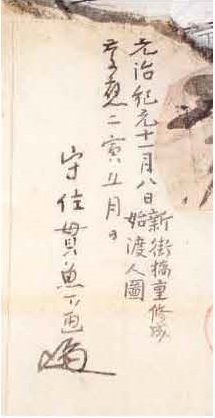 元治紀元十一月八日新街橋重修成
始渡人圖
慶應二寅五月日
守住貫魚画